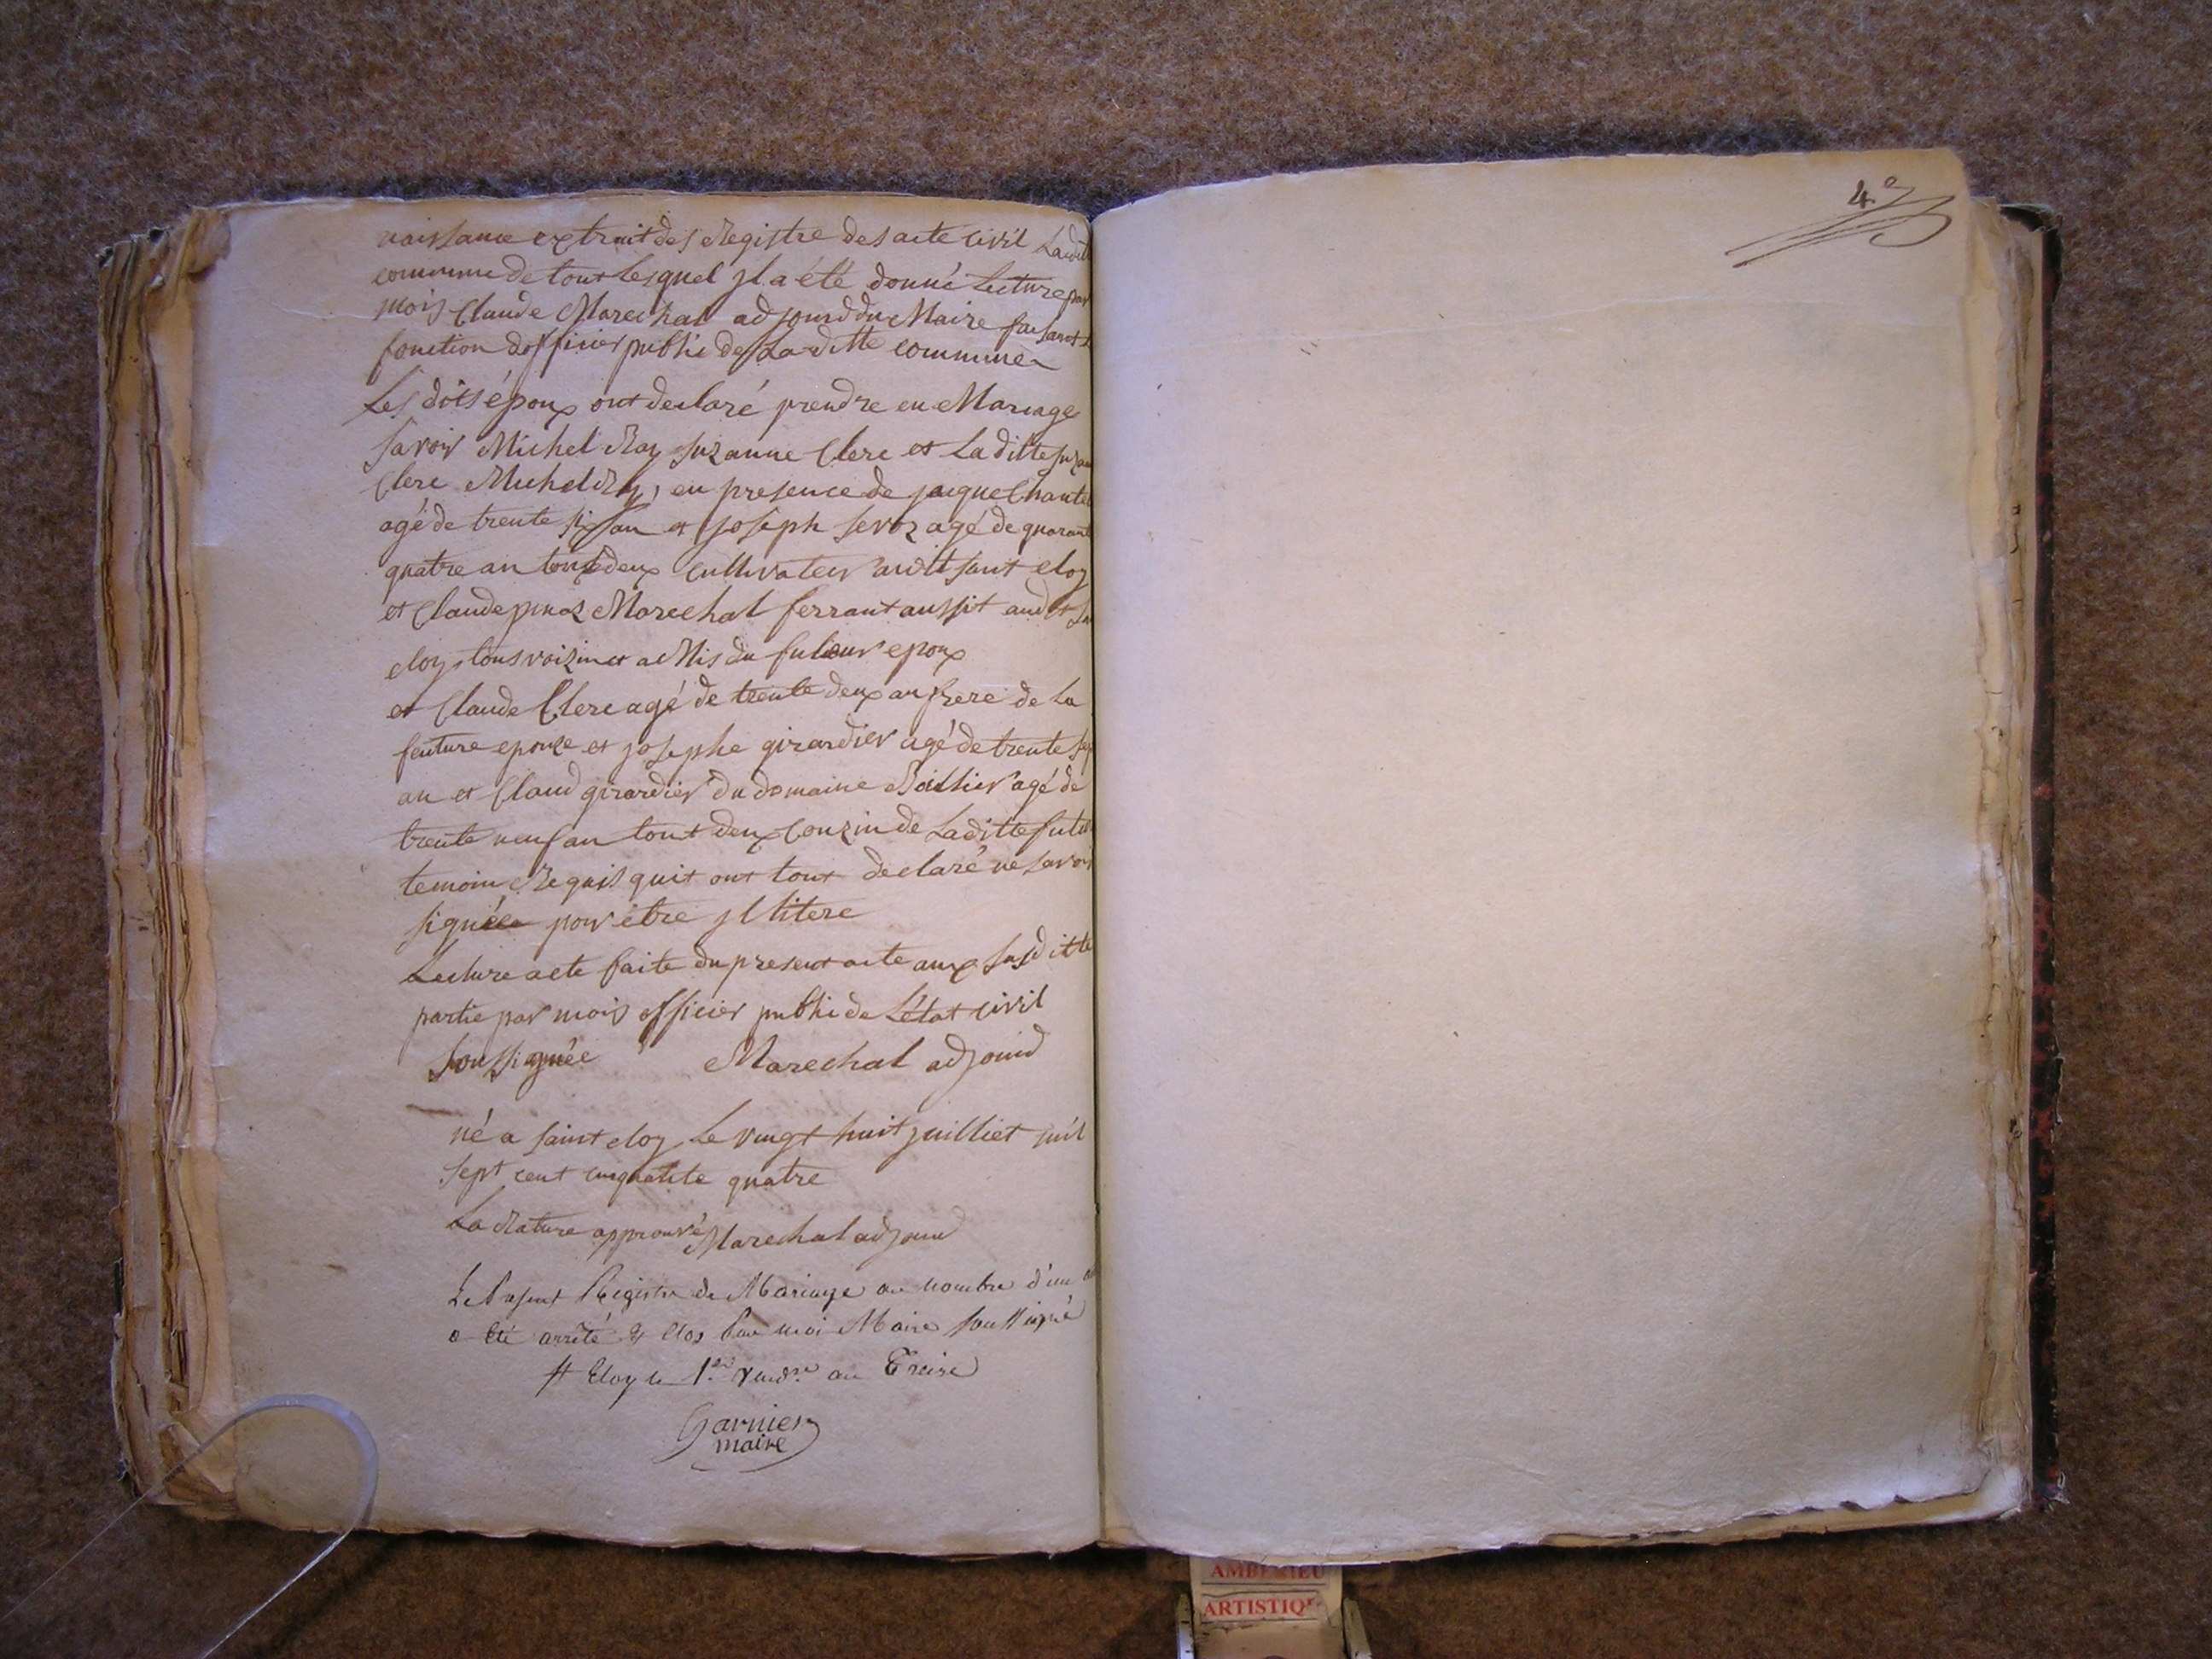 naissance extrait des Registre des acte civil Ladit
commune de tout Lesquel jl a été donné Lecture par
mois Claude Marechal adjoind du Maire faisant L
fonction dofficier publi de La ditte commune
Les dits époux ont declaré prendre en Mariage
savoir Michel Ray suzanne Clerc et La ditte suzan
Clerc Michel Ray, en presence de jacque Chantel
agé de trente six an et joseph servoz agé de quarant
quatre an tout deux Cultivateur audit saint eloy
et Claude Marechal ferrant aussit audit
eloy tous voizin et aMis du futeur epoux
et Claude Clerc agé de trente deux an frere de La
feuture epouze et josephe girardier agé de trente
an et Claud girardier du domaine agé de
trente neuf an tout deux Couzin de Laditte futu
temoin Requis quit ont tout declaré ne savoir
signée pour être jl litere
Lecture acte faite du present acte aux susditte
partie par mois officier publi de L'état civil
soussignée Marechal adjoind
né a saint eloy Le vingt huit juilliet mil
sept cent cinquatte quatre
La Rature approuvé Marechal adjoind
Le present Registre de Mariage au nombre d'un
a été arrêté & clos Par moi Maire soussigné
St Eloy le 1er vendre an Treize
Garnier
maire
4e
AMBERIEU
ARTISTIQ